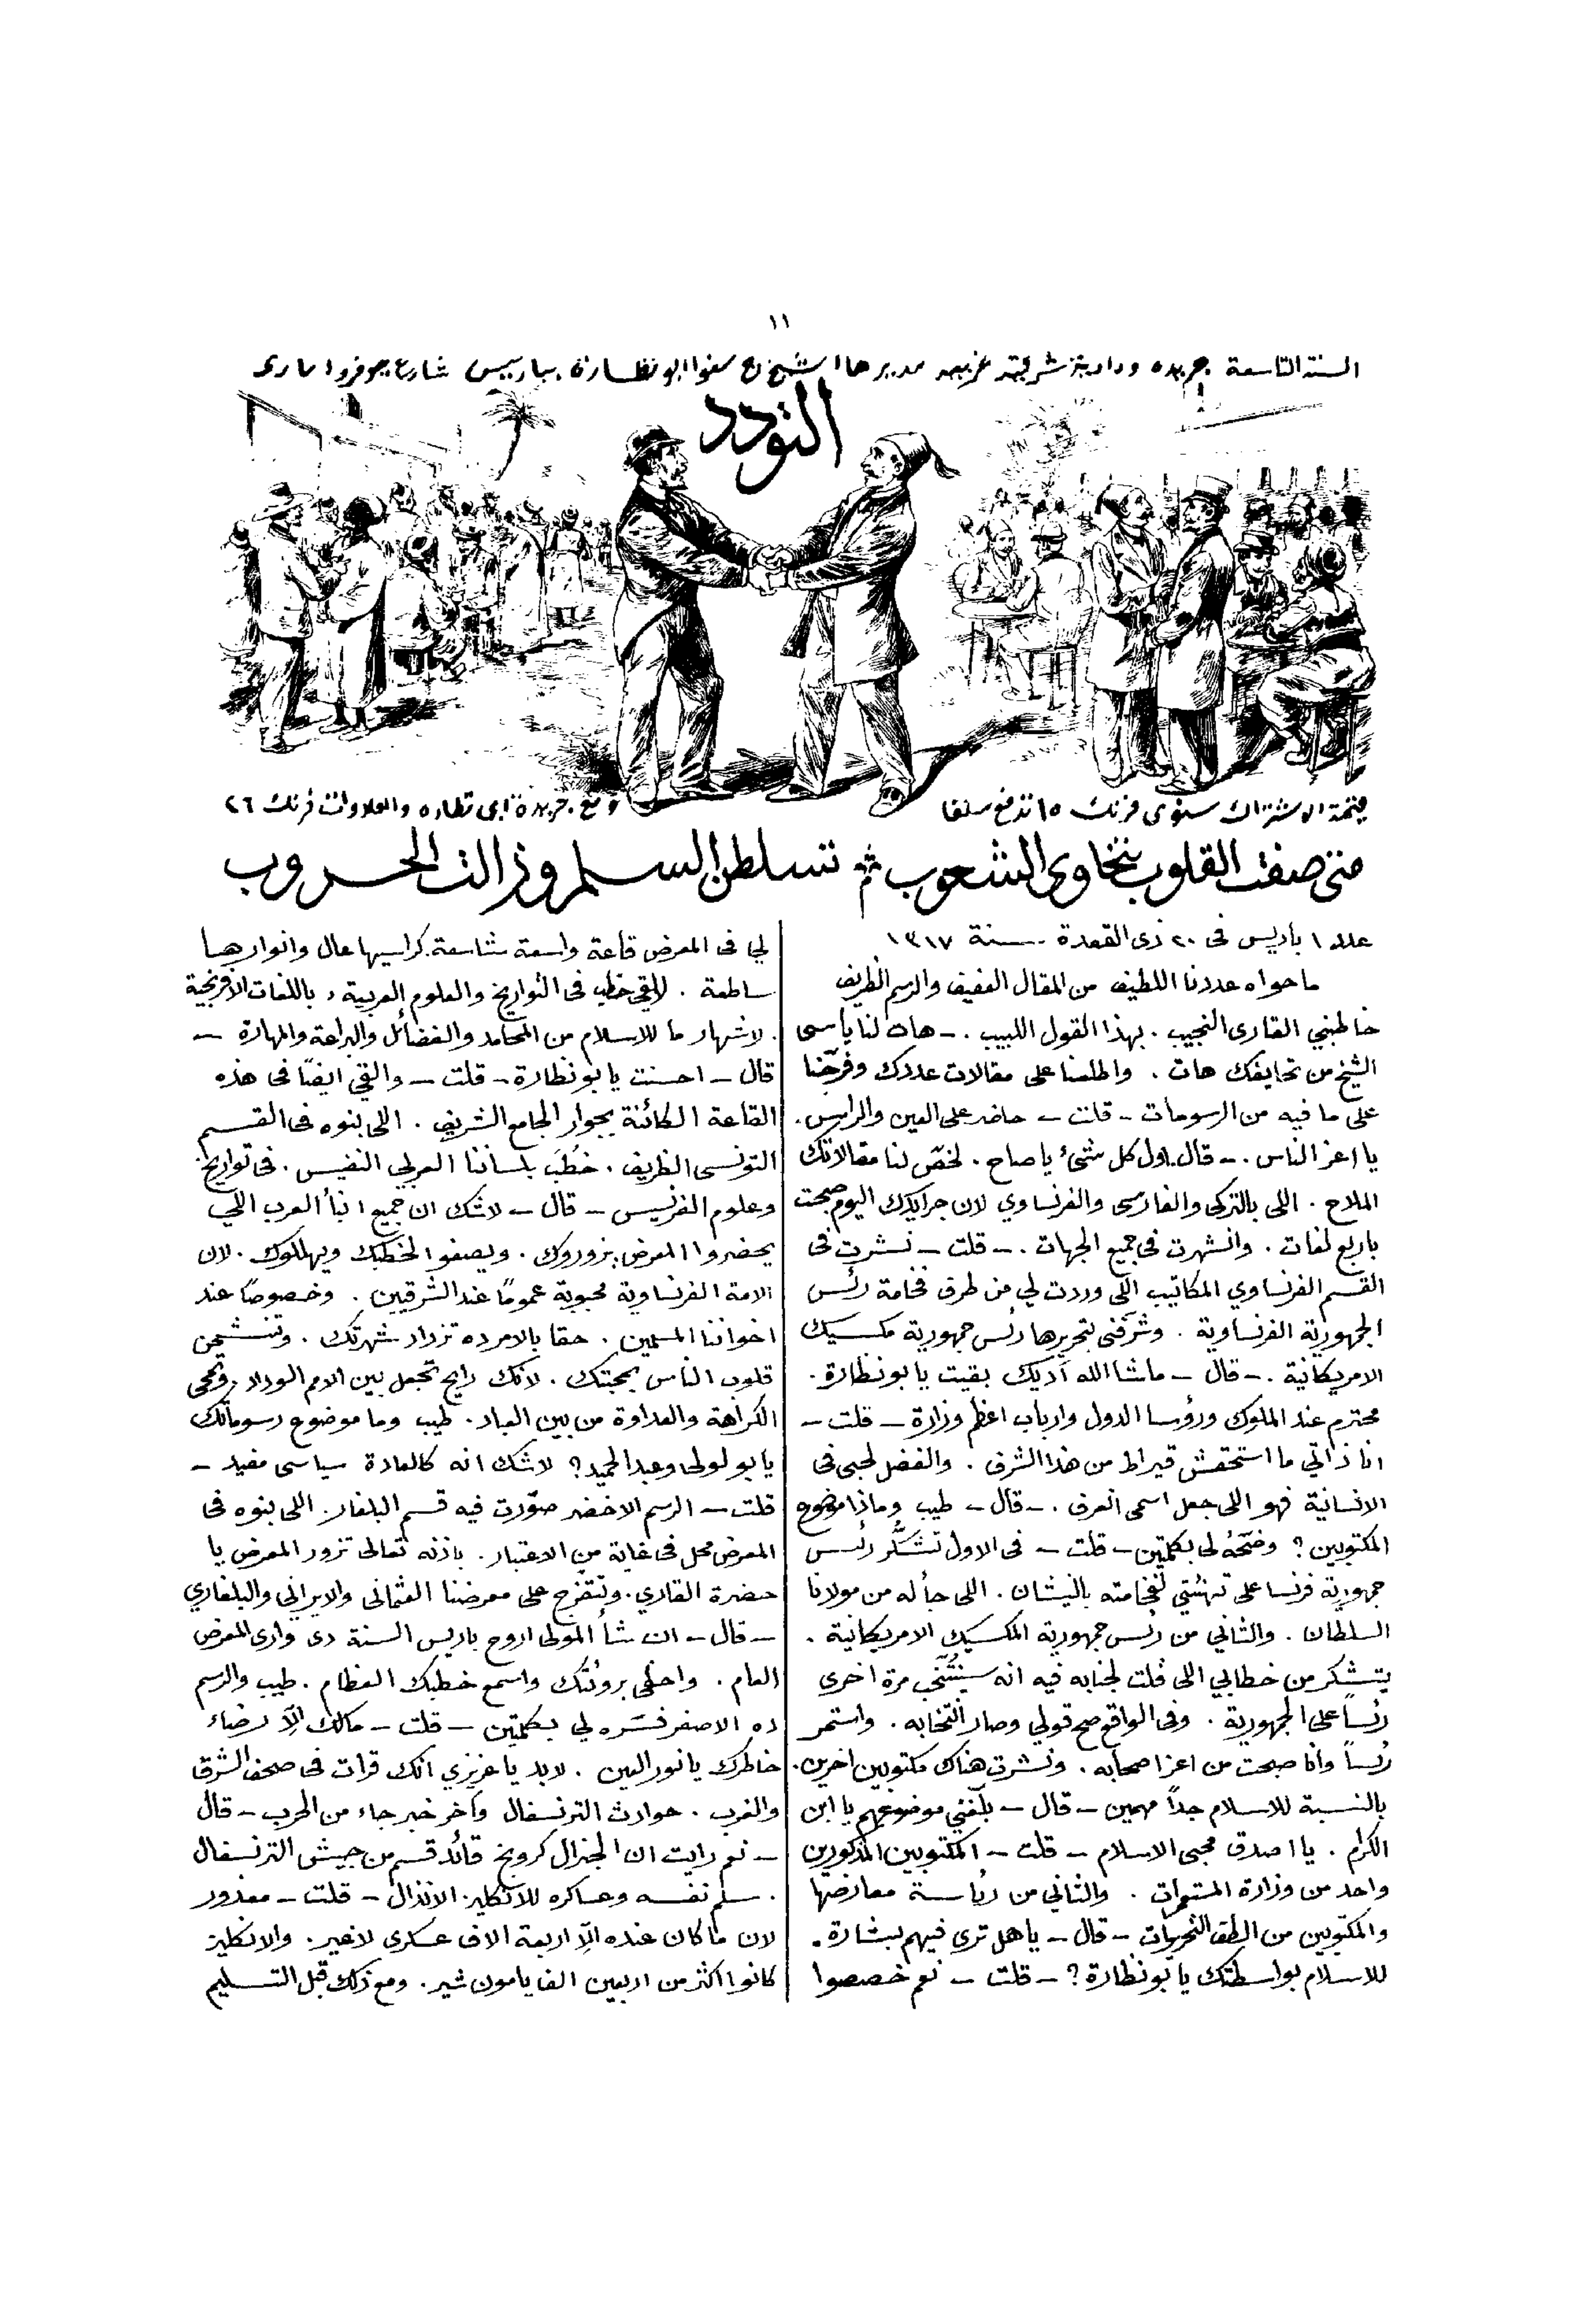 ١١
السنة التاسعة جريده ودادية شرقية غربيه مديرها الشيخ ج سنوا ابو نظارة بباريس شارع جوفروا ماري
التودد
قيمة الاشتراك سنوي فرنك ١٥ تدفع سلفا
ومع جريدة ابي نظاره والعلاوات فرنك ٢٦
متى صفت القلوب بتخاوي الشعوب تسلطن السلم وزالت الحروب
عدد ١ باريس فى ٢٠ ذى القعدة سنة ١٣١٧
ما حواه عددنا اللطيف من المقال العفيف والرسم الظريف
خاطبني القارى النجيب . بهذا القول اللبيب . – هات لنا ياسى
الشيخ من تحايفك هات . واطلعنا على مقالات عددك وفرّجنا
على ما فيه من الرسومات – قلت – حاضر على العين والراس .
يا اعز الناس . – قال . اول كل شئ يا صاح . لخصّ لنا مقالاتك
الملاح . اللى بالتركى والفارسى والفرنساوي لان جرايدك اليوم صبحت
باربع لغات . وانشهرت فى جميع الجهات . – قلت – نشرت فى
القسم الفرنساوي المكاتيب اللى وردت لي من طرف فخامة رئس
الجمهورية الفرنساوية . وشرّفنى بتحريرها رئس جمهورية مكسيك
الامريكانية . – قال – ماشا الله آديك بقيت يا بو نظارة .
محترم عند الملوك ورؤسا الدول وارباب اعظم وزارة – قلت –
انا ذاتي ما استحقش قيراط من هذا الشرف . والفضل لحبى فى
الانسانية فهو اللى جعل اسمى انعرف . – قال – طيب وماذا موضوع
المكتوبين ؟ وضّحهُ لى بكلمتين – قلت – فى الاول تشكَّر رئس
جمهورية فرنسا على تهنئتي لفخامته بالنيشان . اللى جأ له من مولانا
السلطان . والثاني من رئس جمهورية المكسيك الامريكانية .
يتشكر من خطابي اللى قلت لجنابه فيه انه سينتخب مرة اخرى
رئساً على الجمهورية . وفى الواقع صح قولي وصار انتخابه . واستمر
رئساً وانا صبحت من اعز اصحابه . ونشرت هناك مكتوبين اخرين .
بالنسبة للاسلام جداً مهمين – قال – بلّغني موضوعهم يا ابن
الكرام . يا اصدق محبى الاسلام – قلت – المكتوبين المذكورين
واحد من وزارة المستعمرات . والثاني من رئاسة معارضها
والمكتوبين من الطف التحريرات – قال – يا هل ترى فيهم بشارة .
للاسلام بواسطتك يا بو نظارة ؟ – قلت – نعم خصصوا
لي فى المعرض قاعة واسعة شاسعة . كراسيها عال وانوارها
ساطعة . لالقي خطب فى التواريخ والعلوم العربية , باللغات الافرنجية
. لاشهار ما للاسلام من المحامد والفضائل والبراعة والمهارة –
قال – احسنت يا بو نظارة – قلت – والقي ايضًا فى هذه
القاعة الكائنة بجوار الجامع الشريف . اللى بنوه فى القسم
التونسى الظريف . خُطَبَ بلساننا العربي النفيس . فى تواريخ
وعلوم الفرنسيس – قال – لاشك ان جميع انبأ العرب اللي
يحضروا المعرض يزوروك . ويصغوا لخطبك ويهللوك . لان
الامة الفرنساوية محبوبة عمومًا عند الشرقيين . وخصوصًا عند
اخواننا المسلمين . حقا بالامر ده تزداد شهرتك . وتنشحن
قلوب الناس بمحبتك . لانك رايح تجعل بين الامم الوداد . وتمحى
الكراهة والعداوة من بين العباد . طيب وما موضوع رسوماتك
يا بو لولى وعبد الحميد ؟ لاشك انه كالعادة سياسى مفيد –
قلت – الرسم الاخضر صوّرت فيه قسم البلغار . اللى بنوه فى
المعرض محل فى غاية من الاعتبار . باذنه تعالى تزور المعرض يا
حضرة القاري . وتتفرج على معرضنا العثمانى والايراني والبلغاري
– قال – ان شأ المولى اروح باريس السنة دى وارى المعرض
العام . واحظى برؤتك واسمع خطبك العظام . طيب والرسم
ده الاصفر فسّره لي بكلمتين – قلت – مالك الّا رضاء
خاطرك يا نور العين . لابد يا عزيزي انك قرات فى صحف الشرق
والغرب . حوادث الترنسفال وآخر خبر جاء من الحرب – قال
– نعم رايت ان الجنرال كرونج قائد قسم من جيش الترنسفال
. سلم نفسه وعساكره للانكليز الانذال – قلت – معذور
لان ما كان عنده الّا اربعة الاف عسكرى لاغير . والانكليز
كانوا اكثر من اربعين الف يا مون شير . ومع ذلك قبل التسليم